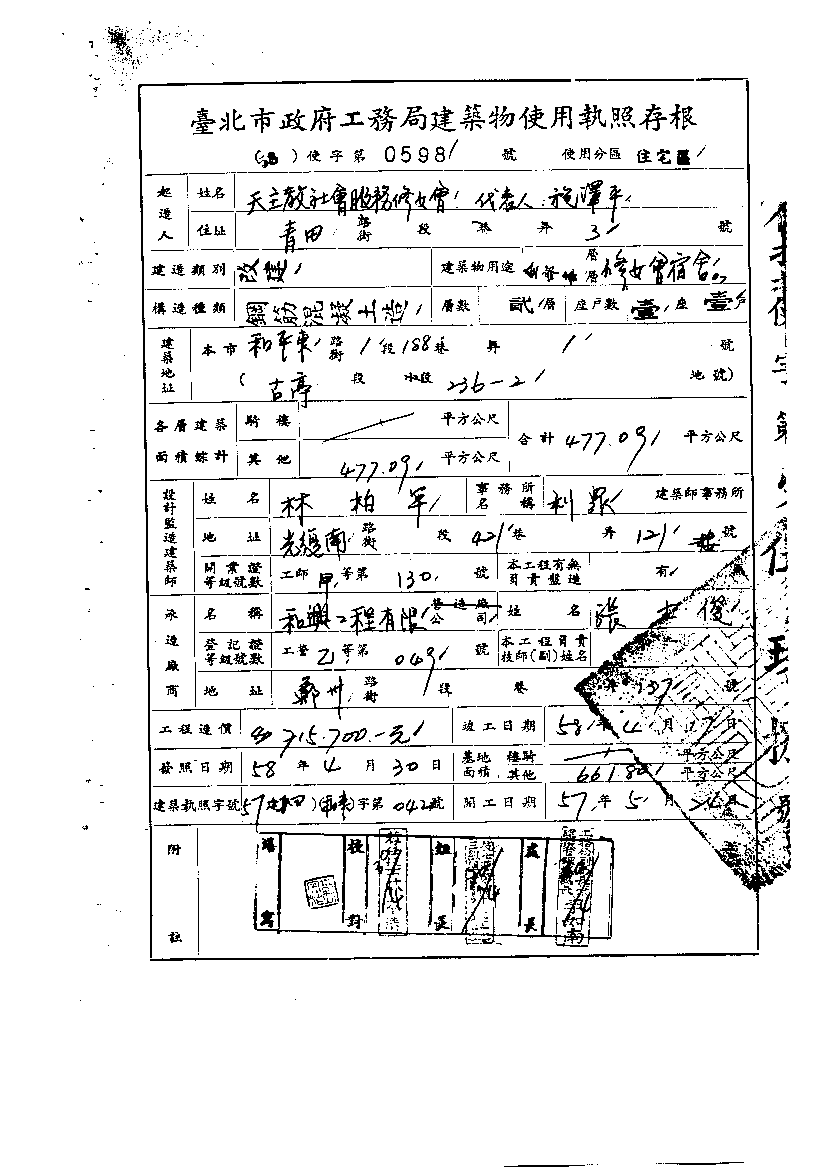 臺北市政府工務局建築物使用執照存根
(58)使字第0598號 使用分區 住宅區
起造人 姓名 天主教社會服務修女會 代表人 施澤平
住址 青田 路街 段 巷 弄 3 號
建造類別 改建 建築物用途 層層 修女會宿舍
構造種類 鋼筋混凝土造 層數 貳層 座戶數 壹座 壹戶
建築地址 本市 和平東 路街 1段188巷 弄 1 號
(古亭 段 小段 236-2 地號)
各層建築面積綜計 騎樓 平方公尺 合計 477.09 平方公尺
其他 477.09 平方公尺
設計監造建築師 姓名 林柏年 事務所名稱 利眾 建築師事務所
地址 光復南 路街 段 42巷 弄 12 號
開業證等級號數 工師 甲等第 130 號 本工程有無負責監造 有 無
承造廠商 名稱 和興工程有限 營造廠公司 姓名 張 俊
登記證等級號數 工登 乙等第 049 號 本工程負責技師(副)姓名
地址 鄭州 路街 段 巷 弄 137 號
工程造價 715,700.-元 竣工日期 58年4月17日
發照日期 58年4月30日 基地面積 騎樓 平方公尺
其他 661.80 平方公尺
建築執照字號 57建 字第042號 開工日期 57年5月24日
附註 繕寫 校對 組長 處長